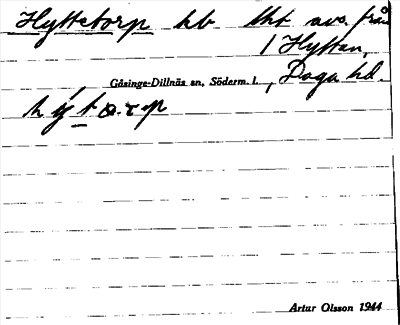 Hyttetorp hb tht avs. från
1 Hyttan,
Gåsinge-Dillnäs sn, Söderm. l., Daga hd.
Artur Olsson 1944